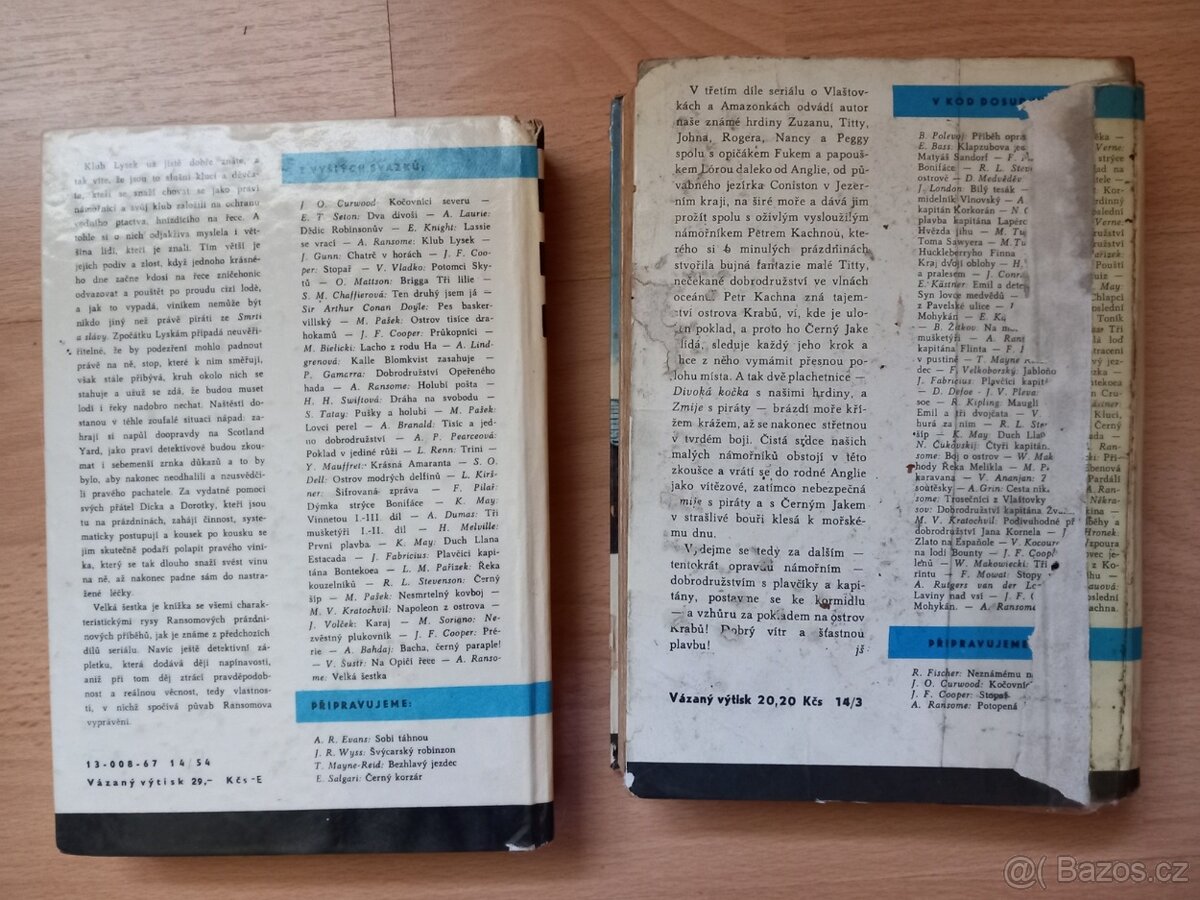 Klub Lysek už jistě dobře znáte, a
tak víte, že jsou to slušní kluci a děvča-
ta, kteří se snaží chovat se jako praví
námořníci a svůj klub založili na ochranu
vodního ptactva, hnízdícího na řece. A
tohle si o nich odjakživa myslela i vět-
šina lidí, kteří je znali. Tím větší je
jejich podiv a zlost, když jednoho krásné-
ho dne začne kdosi na řece zničehonic
odvazovat a pouštět po proudu cizí lodě,
a jak to vypadá, viníkem nemůže být
nikdo jiný než právě piráti ze Smrti
a slávy. Zpočátku Lyskám připadá neuvěři-
telné, že by podezření mohlo padnout
právě na ně, stop, které k nim směřují,
však stále přibývá, kruh okolo nich se
stahuje a už se zdá, že budou muset
lodi i řeky nadobro nechat. Naštěstí do-
stanou v téhle zoufalé situaci nápad: za-
hrají si napůl doopravdy na Scotland
Yard, jako praví detektivové budou zkou-
mat i sebemenší zrnka důkazů a to by
bylo, aby nakonec neodhalili a neusvědči-
li pravého pachatele. Za vydatné pomoci
svých přátel Dicka a Dorotky, kteří jsou
tu na prázdninách, zahájí činnost, syste-
maticky postupují a kousek po kousku se
jim skutečně podaří polapit pravého viní-
ka, který se tak dlouho snaží svést vinu
na ně, až nakonec padne sám do nastra-
žené léčky.
Velká šestka je knížka se všemi charak-
teristickými rysy Ransomových prázdni-
nových příběhů, jak je známe z předchozích
dílů seriálu. Navíc ještě detektivní zá-
pletku, která dodává ději napínavosti,
aniž při tom děj ztrácí pravděpodob-
nost a reálnou věcnost, tedy vlastnos-
ti, v nichž spočívá půvab Ransomova
vyprávění.
13-008-67 14/54
Vázaný výtisk 29,- Kčs-E
VYŠLÝCH SVAZKŮ:
J. O. Curwood: Kočovníci severu —
E. T. Seton: Dva divoši — A. Laurie:
Dědic Robinsonův — E. Knight: Lassie
se vrací — A. Ransome: Klub Lysek —
J. Gunn: Chatrč v horách — J. F. Coo-
per: Stopař — V. Vladko: Potomci Sky-
tů — O. Mattson: Brigga Tři lilie —
S. M. Chaffierová: Ten druhý jsem já —
Sir Arthur Conan Doyle: Pes basker-
villský — M. Pašek: Ostrov tisíce dra-
hokamů — J. F. Cooper: Průkopníci —
M. Bielicki: Lacho z rodu Ha — A. Lind-
grenová: Kalle Blomkvist zasahuje —
P. Gamarra: Dobrodružství Opeřeného
hada — A. Ransome: Holubí pošta —
H. H. Swiftová: Dráha na svobodu —
S. Tatay: Pušky a holubi — M. Pašek:
Lovci perel — A. Branald: Tisíc a jed-
no dobrodružství — A. P. Pearceová:
Poklad v jediné růži — L. Renn: Trini —
Y. Mauffret: Krásná Amaranta — S. O.
Dell: Ostrov modrých delfínů — L. Kirš-
ner: Šifrovaná zpráva — F. Pilař:
Dýmka strýce Boniface — K. May:
Vinnetou I.-III. díl — A. Dumas: Tři
mušketýři I.-II. díl — H. Melville:
První plavba — K. May: Duch Llana
Estacada — J. Fabricius: Plavčíci kapi-
tána Bontekoea — L. M. Pařízek: Řeka
kouzelníků — R. L. Stevenson: Černý
šíp — M. Pašek: Nesmrtelný kovboj —
M. V. Kratochvíl: Napoleon z ostrova —
J. Volček: Karaj — M. Soriano: Ne-
zvěstný plukovník — J. F. Cooper: Pré-
rie — A. Bahdaj: Bacha, černý paraple!
— V. Šustr: Na Opičí řece — A. Ranso-
me: Velká šestka
PŘIPRAVUJEME:
A. R. Evans: Sobi táhnou
J. R. Wyss: Švýcarský robinzon
T. Mayne-Reid: Bezhlavý jezdec
E. Salgari: Černý korzár
V třetím díle seriálu o Vlaštov-
kách a Amazonkách odvádí autor
naše známé hrdiny Zuzanu, Titty,
Johna, Rogera, Nancy a Peggy
spolu s opičákem Fukem a papouš-
kem Lórou daleko od Anglie, od pů-
vabného jezírka Coniston v Jezer-
ním kraji, na širé moře a dává jim
prožít spolu s oživlým vysloužilým
námořníkem Pětrem Kachnou, kte-
rého si o minulých prázdninách
stvořila bujná fantazie malé Titty,
nečekané dobrodružství ve vlnách
oceánu. Petr Kachna zná tajem-
ství ostrova Krabů, ví, kde je ulo-
en poklad, a proto ho Černý Jake
lídá, sleduje každý jeho krok a
hce z něho vymámit přesnou po-
lohu místa. A tak dvě plachetnice —
Divoká kočka s našimi hrdiny, a
Zmije s piráty — brázdí moře kří-
žem krážem, až se nakonec střetnou
v tvrdém boji. Čistá srdce našich
malých námořníků obstojí v této
zkoušce a vrátí se do rodné Anglie
jako vítězové, zatímco nebezpečná
mije s piráty a s Černým Jakem
v strašlivé bouři klesá k mořské-
mu dnu.
V, dejme se tedy za dalším —
tentokrát opravdu námořním —
dobrodružstvím s plavčíky a kapi-
tány, postavme se ke kormidlu
— a vzhůru za pokladem na ostrov
Krabů! Dobrý vítr a šťastnou
plavbu!
jš
Vázaný výtisk 20,20 Kčs 14/3
V KOD DOSUD
B. Polevoj: Příběh opra
E. Bass: Klapzubova jed
Matyáš Sandorf — F.
Boniface — R. L. Steve
ostrově — D. Medvěděv
J. London: Bílý tesák —
midelník Vlnovský — A
kapitán Korkorán — N
plavba kapitána Lapér
Hvězda jihu — M. Tw
Toma Sawyera — M. Tu
Huckleberryho Finna
Kraj dvojí oblohy — H.
a pralesem — J. Conra
E. Kästner: Emil a dete
Syn lovce medvědů —
z Pavelské ulice —
Mohykán — E. Kä
— B. Žitkov: Na m
mušketýři — A. Rans
kapitána Flinta — F.
v pustině — T. Mayne R
dec — F. Velkoborský: Jabloňo
J. Fabricius: Plavčíci kapit
— D. Defoe - J. V. Pleva:
soe — R. Kipling: Mauglí
Emil a tři dvojčata — V.
hurá za ním — R. L. Ste
šíp — K. May: Duch Lla
N. Čukovskij: Čtyři kapitán
some: Boj o ostrov — W. Mak
hody Řeka Melikla — M. P
karavana — V. Ananjan:
soutěsky — A. Grin: Cesta nik
some: Trosečníci z Vlaštovky
sov: Dobrodružství kapitána Žva
M. V. Kratochvíl: Podivuhodné př
dobrodružství Jana Kornela —
Zlato na Españole — V. Kocour
na lodi Bounty — J. F. Coop
lehů — W. Makowiecki: Tři
rintu — F. Mowat: Stopy
A. Rutgers van der Lo
Laviny nad vsí — J. F.
Mohykán. — A. Ransome
PŘIPRAVUJEME
R. Fischer: Neznámému
J. O. Curwood: Kočovníc
J. F. Cooper: Stopař
A. Ransome: Potopená
@( Bazos.cz